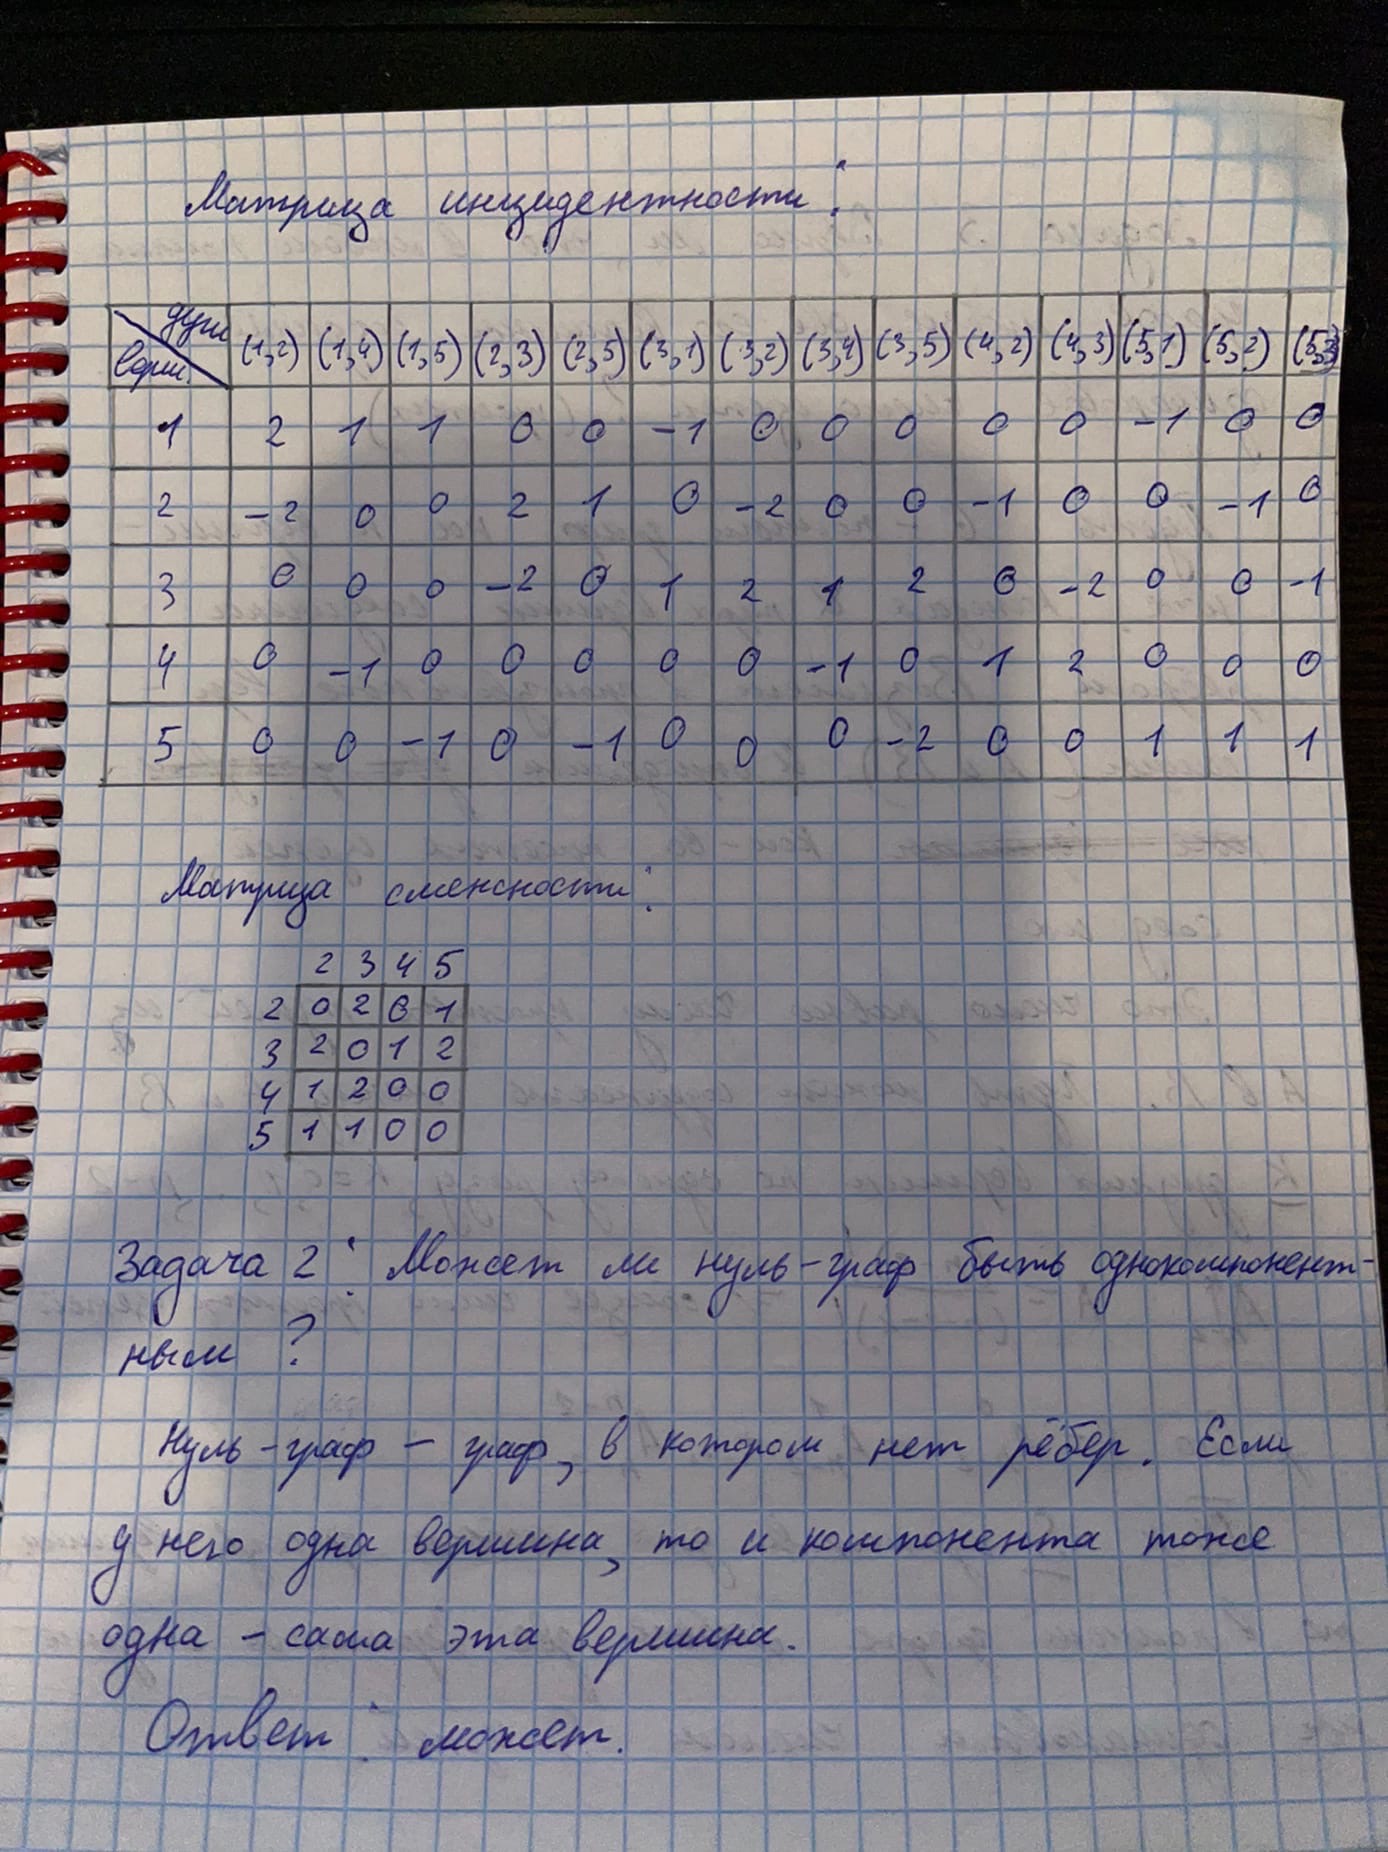 Матрица инцидентности:
дуги (1,2) (1,4) (1,5) (2,3) (2,5) (3,1) (3,2) (3,4) (3,5) (4,2) (4,3) (5,1) (5,2) (5,3)
верш.
1 2 1 1 0 0 -1 0 0 0 0 0 -1 0 0
2 -2 0 0 2 1 0 -2 0 0 -1 0 0 -1 0
3 0 0 0 -2 0 1 2 1 2 0 -2 0 0 -1
4 0 -1 0 0 0 0 0 -1 0 1 2 0 0 0
5 0 0 -1 0 -1 0 0 0 -2 0 0 1 1 1
Матрица смежности:
2 3 4 5
2 0 2 0 1
3 2 0 1 2
4 1 2 0 0
5 1 1 0 0
Задача 2: Может ли нуль-граф быть однокомпонент-
ным?
Нуль-граф - граф, в котором нет рёбер. Если
у него одна вершина, то и компонента тоже
одна - сама эта вершина.
Ответ: может.